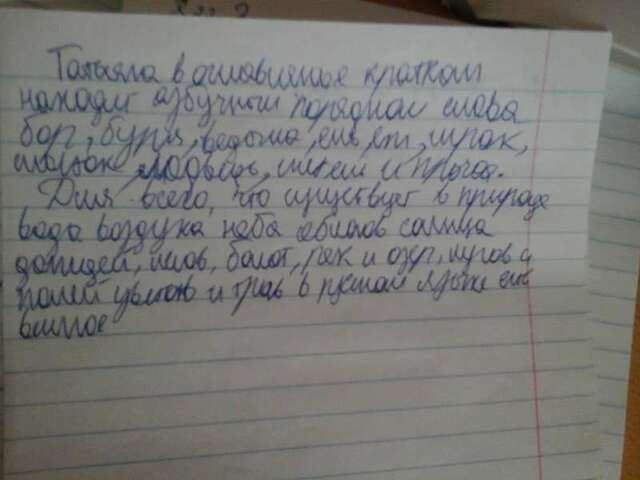 Татьяна в оглавленье кратком
находит азбучным порядком слова
бор, буря, ведьма, ель, еж, мрак,
мосток медведь, метель и прочее.
Для всего, что существует в природе
вода воздуха неба облаков солнца
дождей, лесов, болот, рек и озер, лугов и
полей цветов и трав в русском языке есть
великое